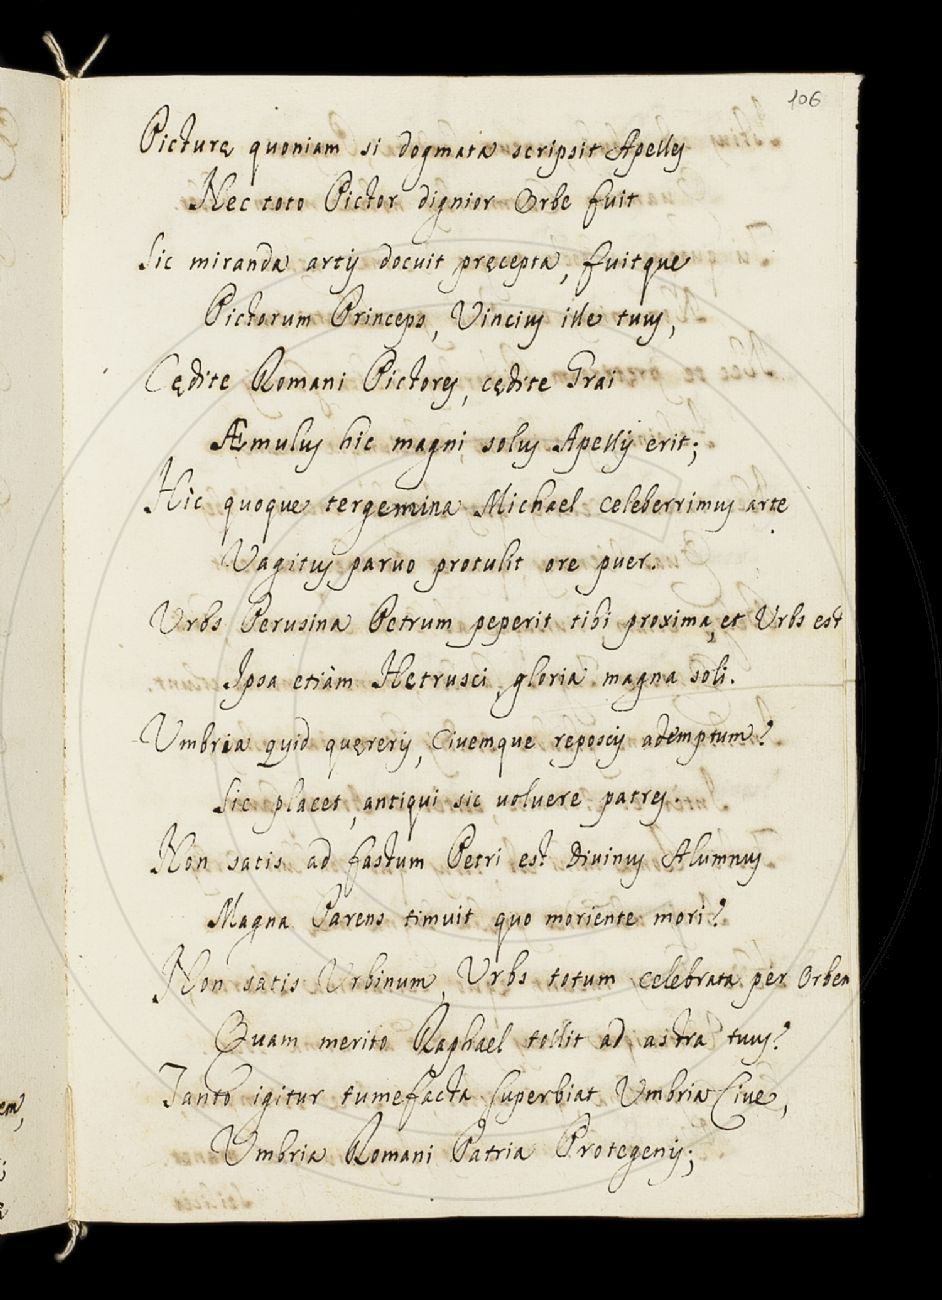 106
Picturę quoniam si dogmata scripsit Apelles
Nec toto Pictor dignior Orbe fuit
Sic miranda artis docuit pręcepta, fuitque
Pictorum Princeps, Vincius ille tuus,
Cędite Romani Pictores, cędite Grai
Æmulus hic magni solus Apellis erit;
Hic quoque tergemina Michael celeberrimus arte
Vagitus paruo protulit ore puer.
Vrbs Perusina Petrum peperit tibi proxima, et Vrbs est
Ipsa etiàm Hetrusci gloria magna soli.
Vmbria quid quęreris, Ciuemque reposcis ademptum?
Sic placet, antiqui sic uoluere patres.
Non satis ad fastum Petri est Diuinus Alumnus
Magna Parens timuit quo moriente mori?
Non satis Vrbinum, Vrbs totum celebrata per Orbem
Quam merito Raphael tollit ad astra tuus?
Tanto igitur tumefacta superbiat Vmbria Ciue,
Vmbria Romani Patria Protegenis;